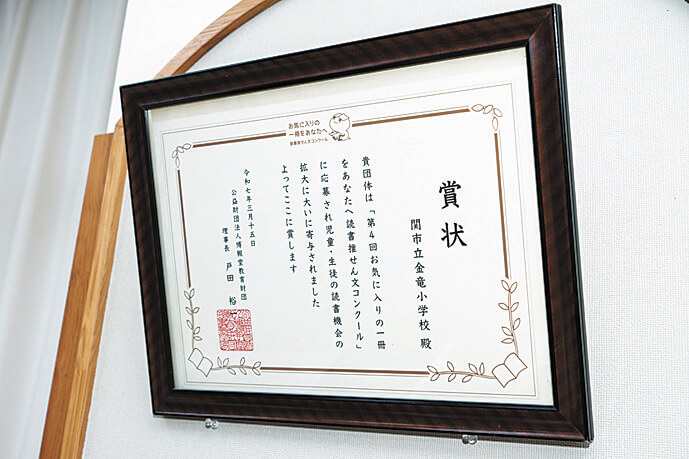 お気に入りの
一冊をあなたへ
読書推せん文コンクール
賞状
関市立金竜小学校 殿
貴団体は「第4回お気に入りの一冊
をあなたへ読書推せん文コンクール」
に応募され児童・生徒の読書機会の
拡大に大いに寄与されました
よってここに賞します
令和七年三月十五日
公益財団法人博報堂教育財団
理事長 戸田 裕一